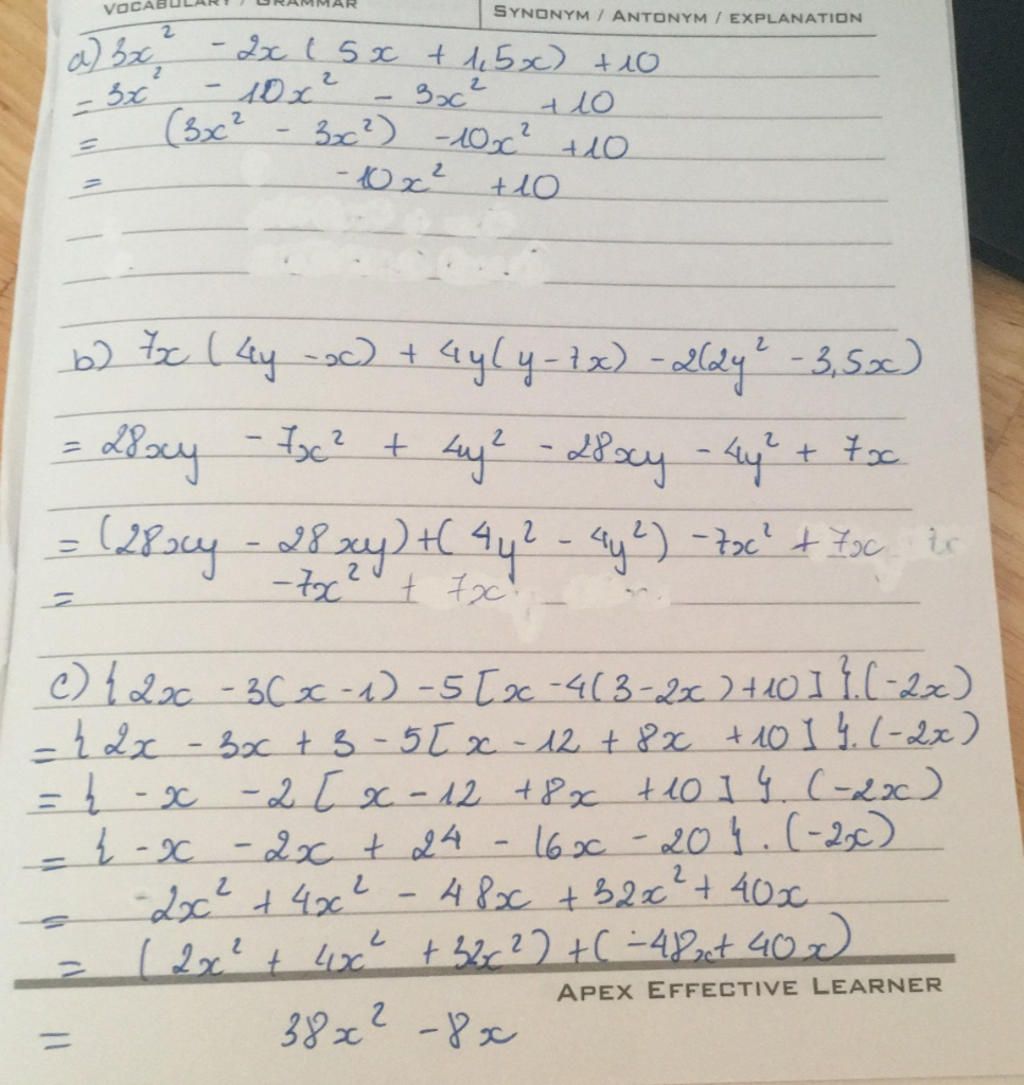 VOCABULARY / GRAMMAR
SYNONYM / ANTONYM / EXPLANATION
a) 3x² - 2x ( 5x + 1,5x) +10
= 3x² - 10x² - 3x² +10
= (3x² - 3x²) -10x² +10
= -10x² +10
b) 7x ( 4y -x) + 4y( y-7x) -2(2y² -3,5x)
= 28xy -7x² + 4y² - 28xy - 4y² + 7x
= (28xy - 28xy)+( 4y² - 4y²) -7x² + 7x
= -7x² + 7x
c) { 2x -3(x -1) -5 [x -4(3-2x)+10] }.(-2x)
= { 2x - 3x + 3 -5[ x -12 + 8x +10] }. (-2x)
= { -x -2 [ x -12 +8x +10] }. (-2x)
= { -x - 2x + 24 - 16x - 20 } . (-2x)
= 2x² + 4x² - 48x + 32x² + 40x
= ( 2x² + 4x² + 32x²) +( -48x+ 40x)
APEX EFFECTIVE LEARNER
= 38x² -8x